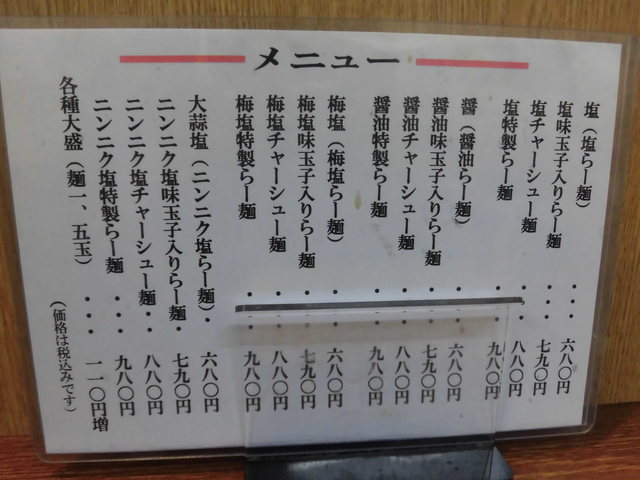 メニュー
塩（塩らー麺）・・・六八〇円
塩味玉子入りらー麺・・・七九〇円
塩チャーシュー麺・・・八八〇円
塩特製らー麺・・・九八〇円
醤（醤油らー麺）・・・六八〇円
醤油味玉子入りらー麺・・・七九〇円
醤油チャーシュー麺・・・八八〇円
醤油特製らー麺・・・九八〇円
梅塩（梅塩らー麺）・・・六八〇円
梅塩味玉子入りらー麺・・・七九〇円
梅塩チャーシュー麺・・・八八〇円
梅塩特製らー麺・・・九八〇円
大蒜塩（ニンニク塩らー麺）・六八〇円
ニンニク塩味玉子入りらー麺・七九〇円
ニンニク塩チャーシュー麺・・八八〇円
ニンニク塩特製らー麺・・・九八〇円
各種大盛（麺一、五玉）・・・一一〇円増
（価格は税込みです）